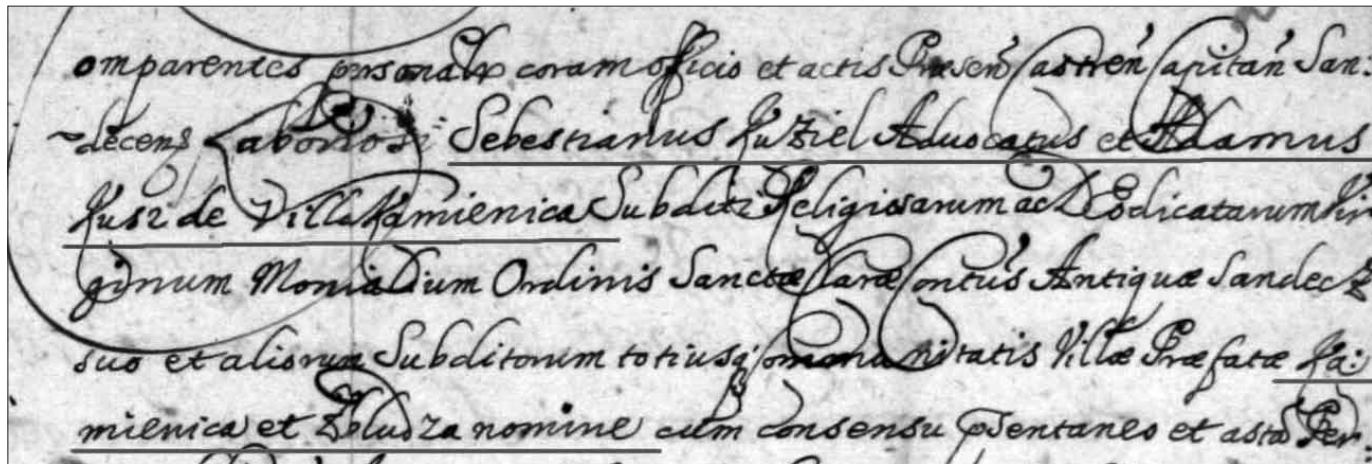 omparentes personalr coram officio et actis Præsen Castren Capitan San:
decens Laboriosi Sebestianus Kuziel Aduocatus et Adamus
Kusz de Villa Kamienica Subditi Religiosarum ac Deodicatarum Vir
ginum Monialium Ordinis Sanctæ Claræ Contus Antiquæ Sandecz
suo et aliorum Subditorum totiusq Communitatis Villæ Præfatæ Ka:
mienica et Zbludza nomine cum consensu psentaneo et